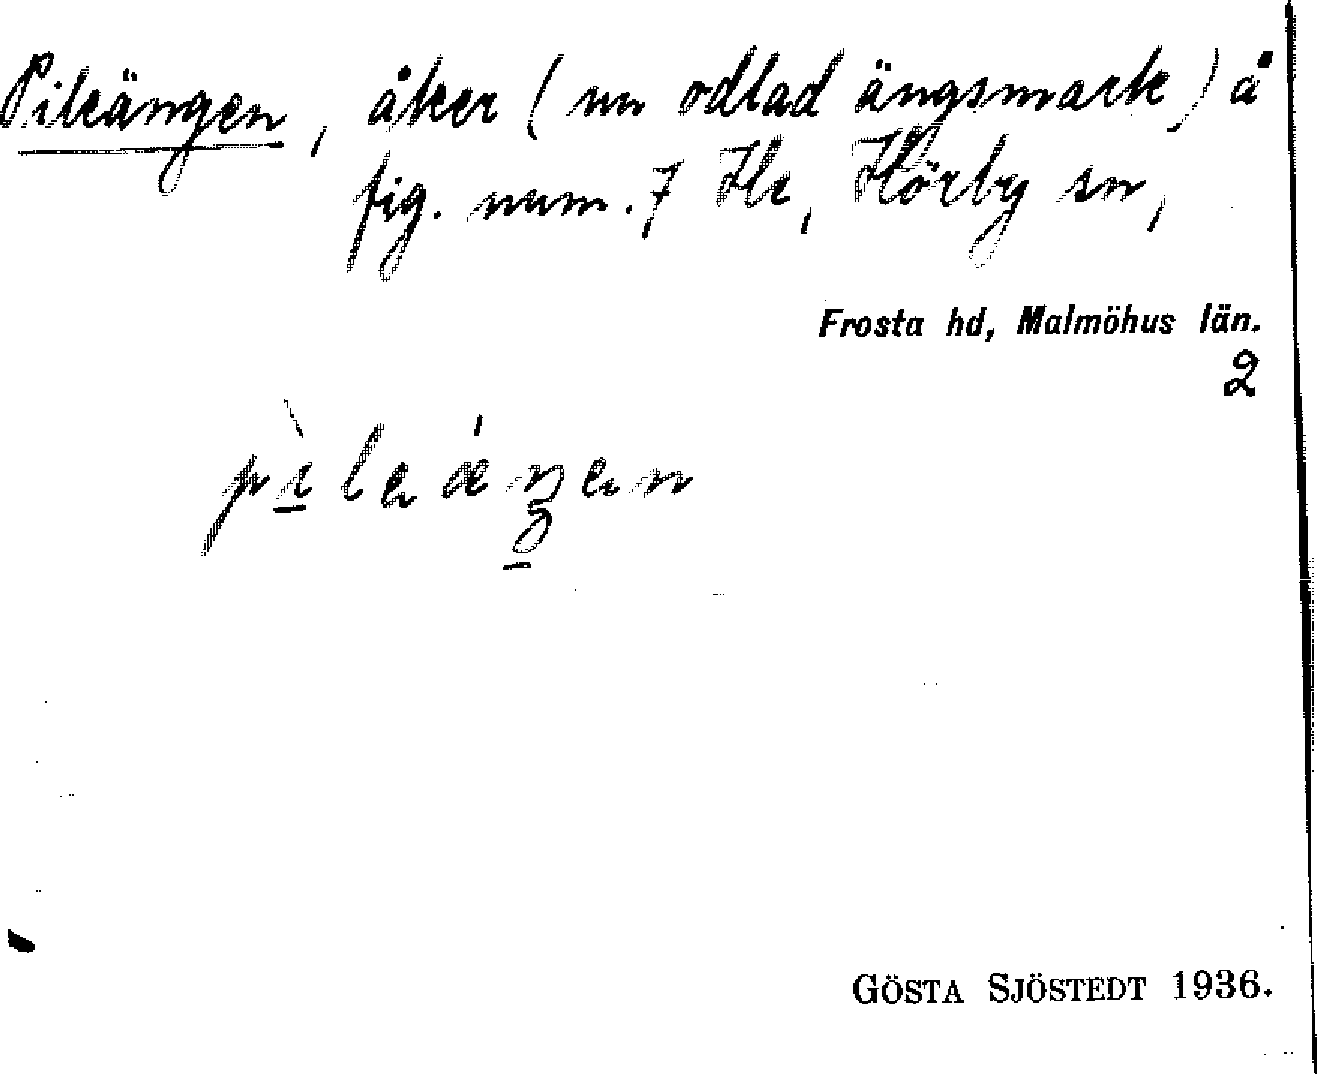 Pileängen, åker (nu odlad ängsmark) å
fig. num. 7 He, Hörby sn,
Frosta hd, Malmöhus län.
2
GÖSTA SJÖSTEDT 1936.